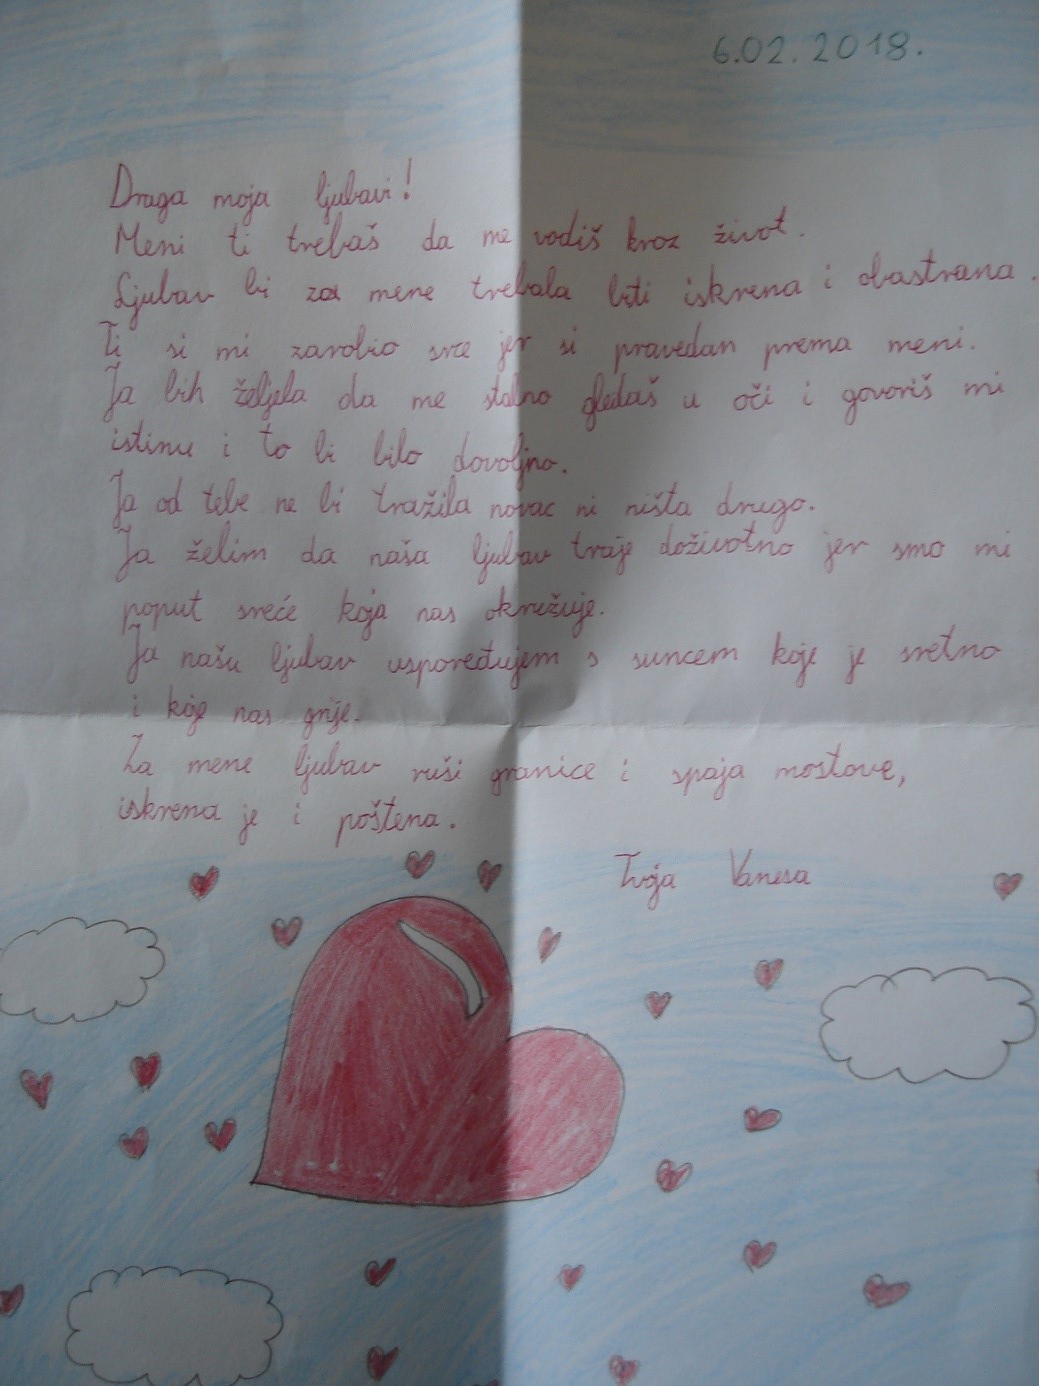 6.02.2018.
Draga moja ljubavi!
Meni ti trebaš da me vodiš kroz život.
Ljubav bi za mene trebala biti iskrena i obastrana.
Ti si mi zarobio srce jer si pravedan prema meni.
Ja bih željela da me stalno gledaš u oči i govoriš mi
istinu i to bi bilo dovoljno.
Ja od tebe ne bi tražila novac ni ništa drugo.
Ja želim da naša ljubav traje doživotno jer smo mi
poput sreće koja nas okružuje.
Ja našu ljubav uspoređujem s suncem koje je sretno
i koje nas grije.
Za mene ljubav ruši granice i spaja mostove,
iskrena je i poštena.
Tvoja Vanesa